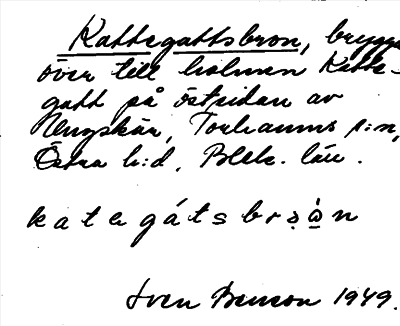 Kattegattsbron, brygga
över till holmen Katte-
gatt på östsidan av
Ungskär, Torhamns s:n,
Östra h:d, Blek. län.
kategátsbrọ̀n
Sven Benson 1949.